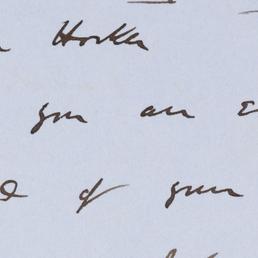 Hooker
you an
of your